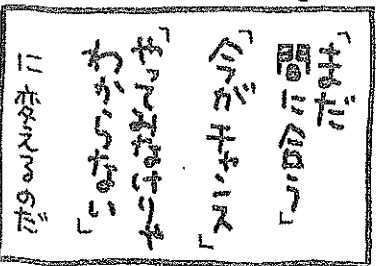 「まだ
間に合う」
「今がチャンス」
「やってみなけりゃ
わからない」
に変えるのだ